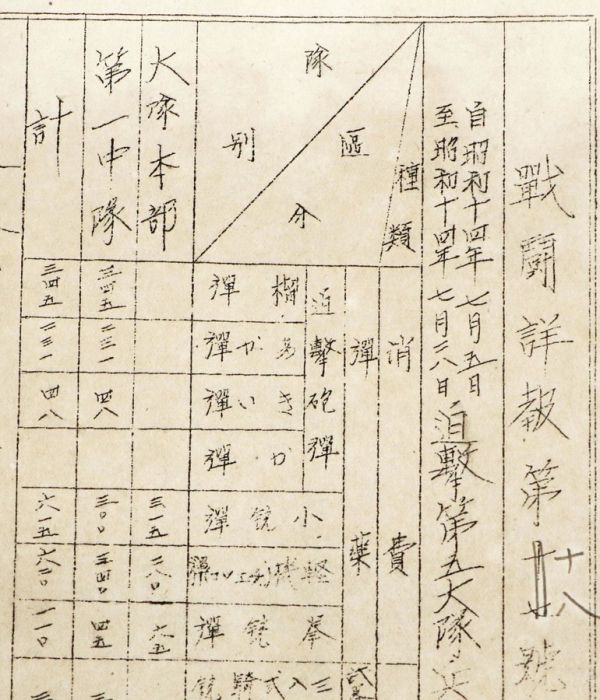 戰鬪詳報第十八號
自昭和十四年七月五日
至昭和十四年七月六日 迫擊第五大隊
隊 區 分 種類 別
消費
彈藥
迫擊砲彈
榴彈
あか彈
きい彈
か彈
小銃彈
輕機
拳銃彈
三八式騎銃
大隊本部 三一五 二八〇 六五
第一中隊 三四五 二三一 四八 三〇〇 三四〇 四五
計 三四五 二三一 四八 六一五 六二〇 一一〇